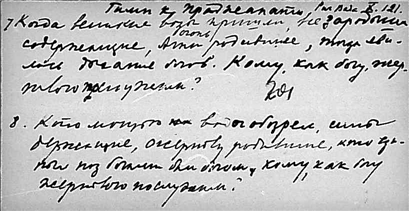 Гимн к Праджапати, Риг Веда X. 121.
7 Когда великие воды пришли, все зародыши
содержащие, огонь родившие, тогда яви-
лось дыхание богов. Кому, как богу жер-
твою послужим?
8. Кто мощью на воды обозрел, силы
держащие, жертву родившие, кто еди-
ный над богами был богом, кому, как богу
жертвою послужим?